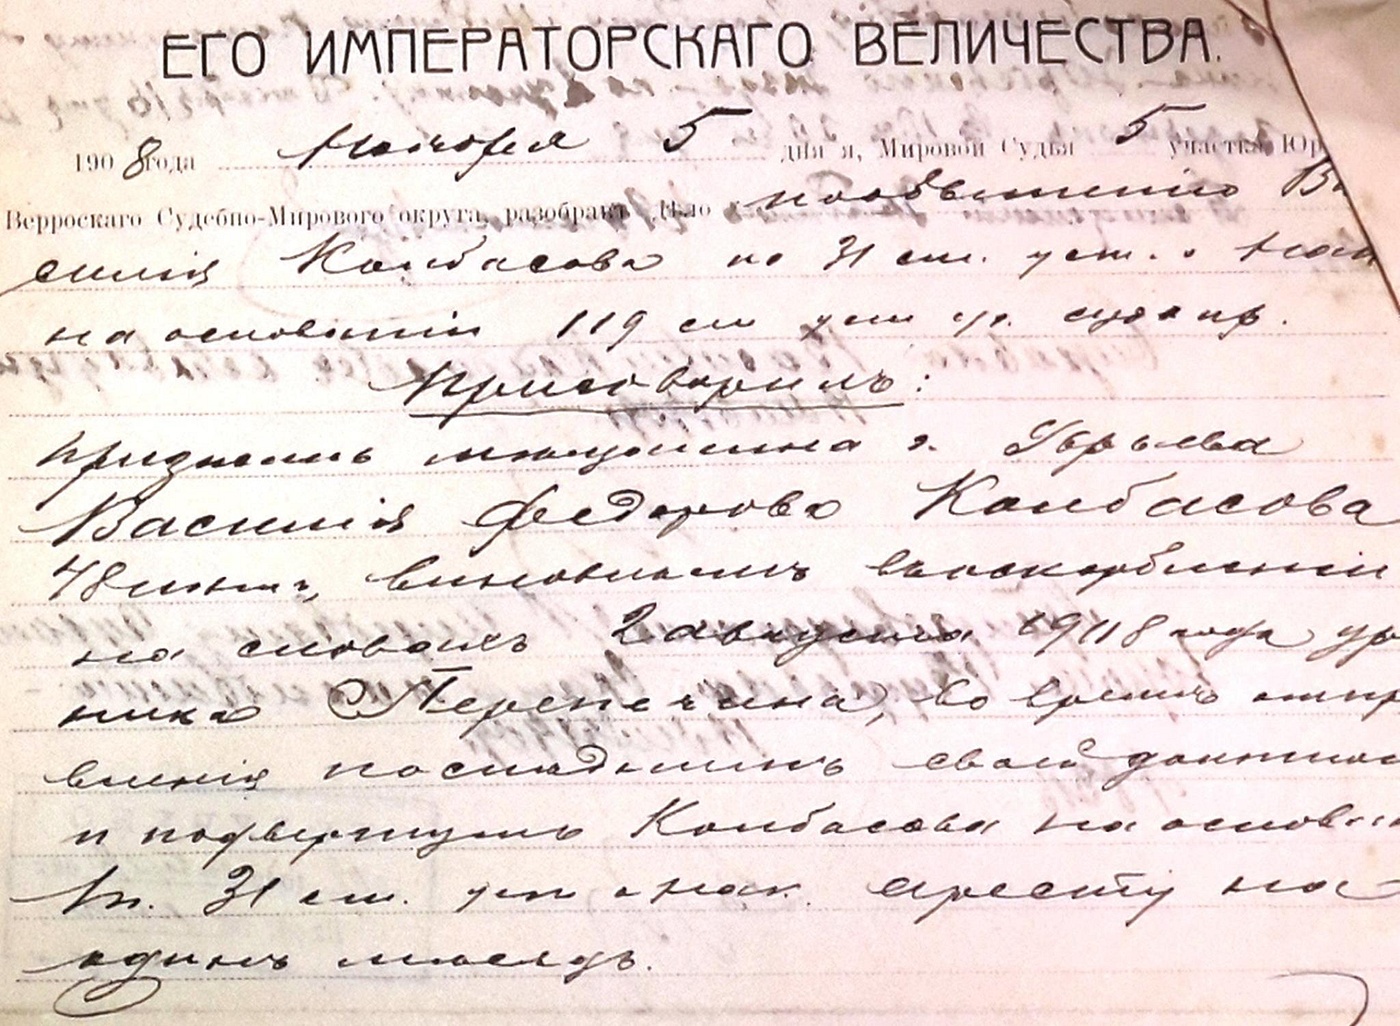 ЕГО ИМПЕРАТОРСКАГО ВЕЛИЧЕСТВА.
1908 года Ноября 5 дня я, Мировой Судья 5 участка, Юр
Верроскаго Судебно-Мирового округа, разобравъ дѣло по обвиненію Ва
силія Колбасова по 31 ст. уст. о нак
на основаніи 119 ст уст уг. судопр.
Приговорилъ:
признать мѣщанина г. Юрьева
Василія Федорова Колбасова
48 лѣтъ, виновнымъ въ оскорбленіи
на словахъ 2 августа 1908 года ур
ника Перепечина, во время отпр
вленія послѣднимъ своей должнос
и подвергнуть Колбасова на основан
31 ст. уст о нак. аресту на
одинъ мѣсяцъ.